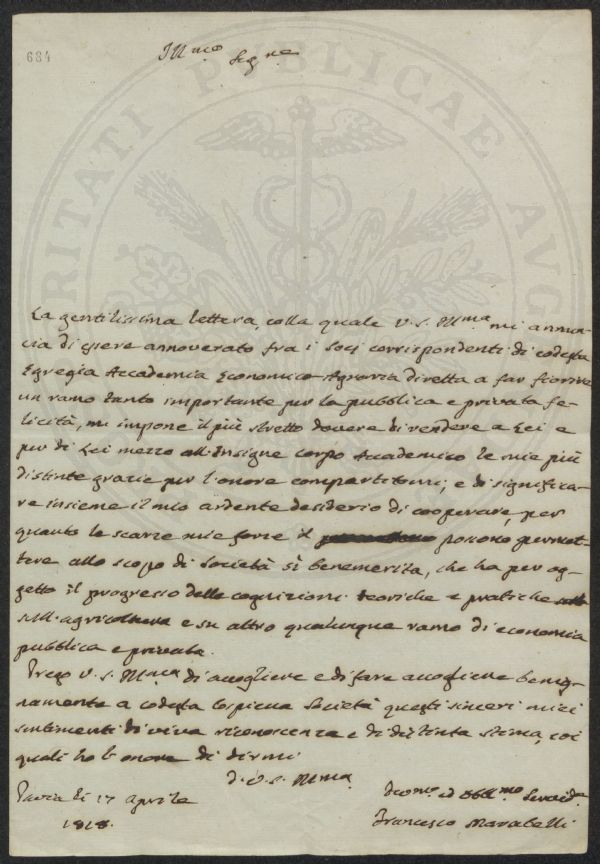 684
Ill.mo Sig.re
La gentilissima lettera, colla quale V. S. Ill.ma mi annun-
cia di essere annoverato fra i Socj corrispondenti di codesta
Egregia Accademia Economico-Agraria diretta a far fiorire
un ramo tanto importante per la pubblica e privata fe-
licità, mi impone il più stretto dovere di rendere a Lei e
per di Lei mezzo all'Insigne Corpo Accademico le mie più
distinte grazie per l'onore compartitomi; e di significa-
re insieme il mio ardente desiderio di cooperare, per
quanto le scarze mie forze il possono permet-
tere allo scopo di Società sì benemerita, che ha per og-
getto il progresso delle cognizioni teoriche e pratiche
sull'agricoltura e su altro qualunque ramo di economia
pubblica e privata.
Prego V. S. Ill.ma di accogliere e di fare accogliere benig-
namente a codesta cospicua Società questi sinceri miei
sentimenti di viva riconoscenza e di distinta stima, coi
quali ho l'onore di dirmi
D. V. S. Ill.ma
Pavia li 17 Aprile
1818.
Devmo. ed Obblmo. Servid.e
Francesco Marabelli